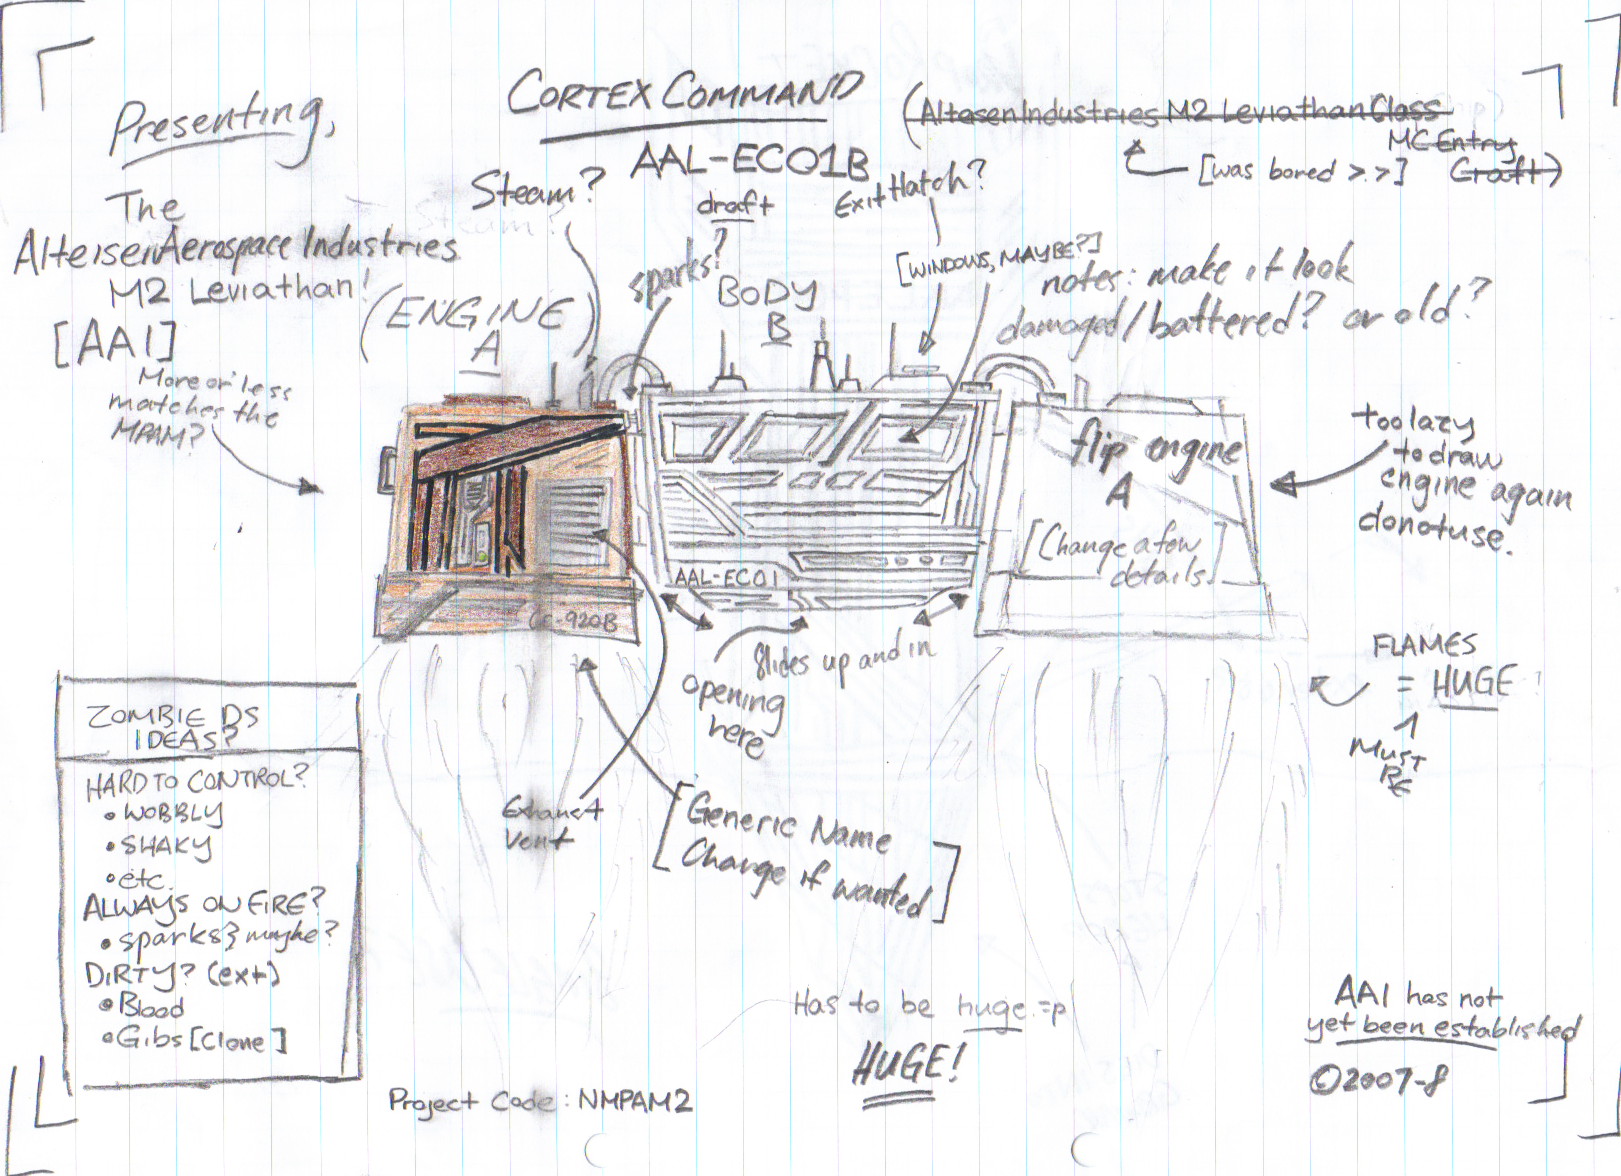 CORTEX COMMAND
AAL-EC01B
draft
Presenting,
The
Alteisen Aerospace Industries
M2 Leviathan!
[AAI]
More or less
matches the
MPAM?
(Altesen Industries M2 Leviathan Class
MC Entry
Craft)
[was bored >.>]
Steam?
sparks?
Exit Hatch?
[WINDOWS, MAYBE?]
(ENGINE)
A
BODY
B
notes: make it look
damaged/battered? or old?
too lazy
to draw
engine again
donotuse.
flip engine
A
[Change a few
details]
AAL-EC01
CC-920B
Slides up and in
opening
here
Exhaust
Vent
[Generic Name
Change if wanted]
FLAMES
= HUGE
Must
BE
ZOMBIE DS
IDEAS?
HARD TO CONTROL?
• WOBBLY
• SHAKY
• etc.
ALWAYS ON FIRE?
• sparks} maybe?
DIRTY? (ext)
• Blood
• Gibs [Clone]
Has to be huge =p
HUGE!
Project Code: NMPAM2
AAI has not
yet been established
©2007-8